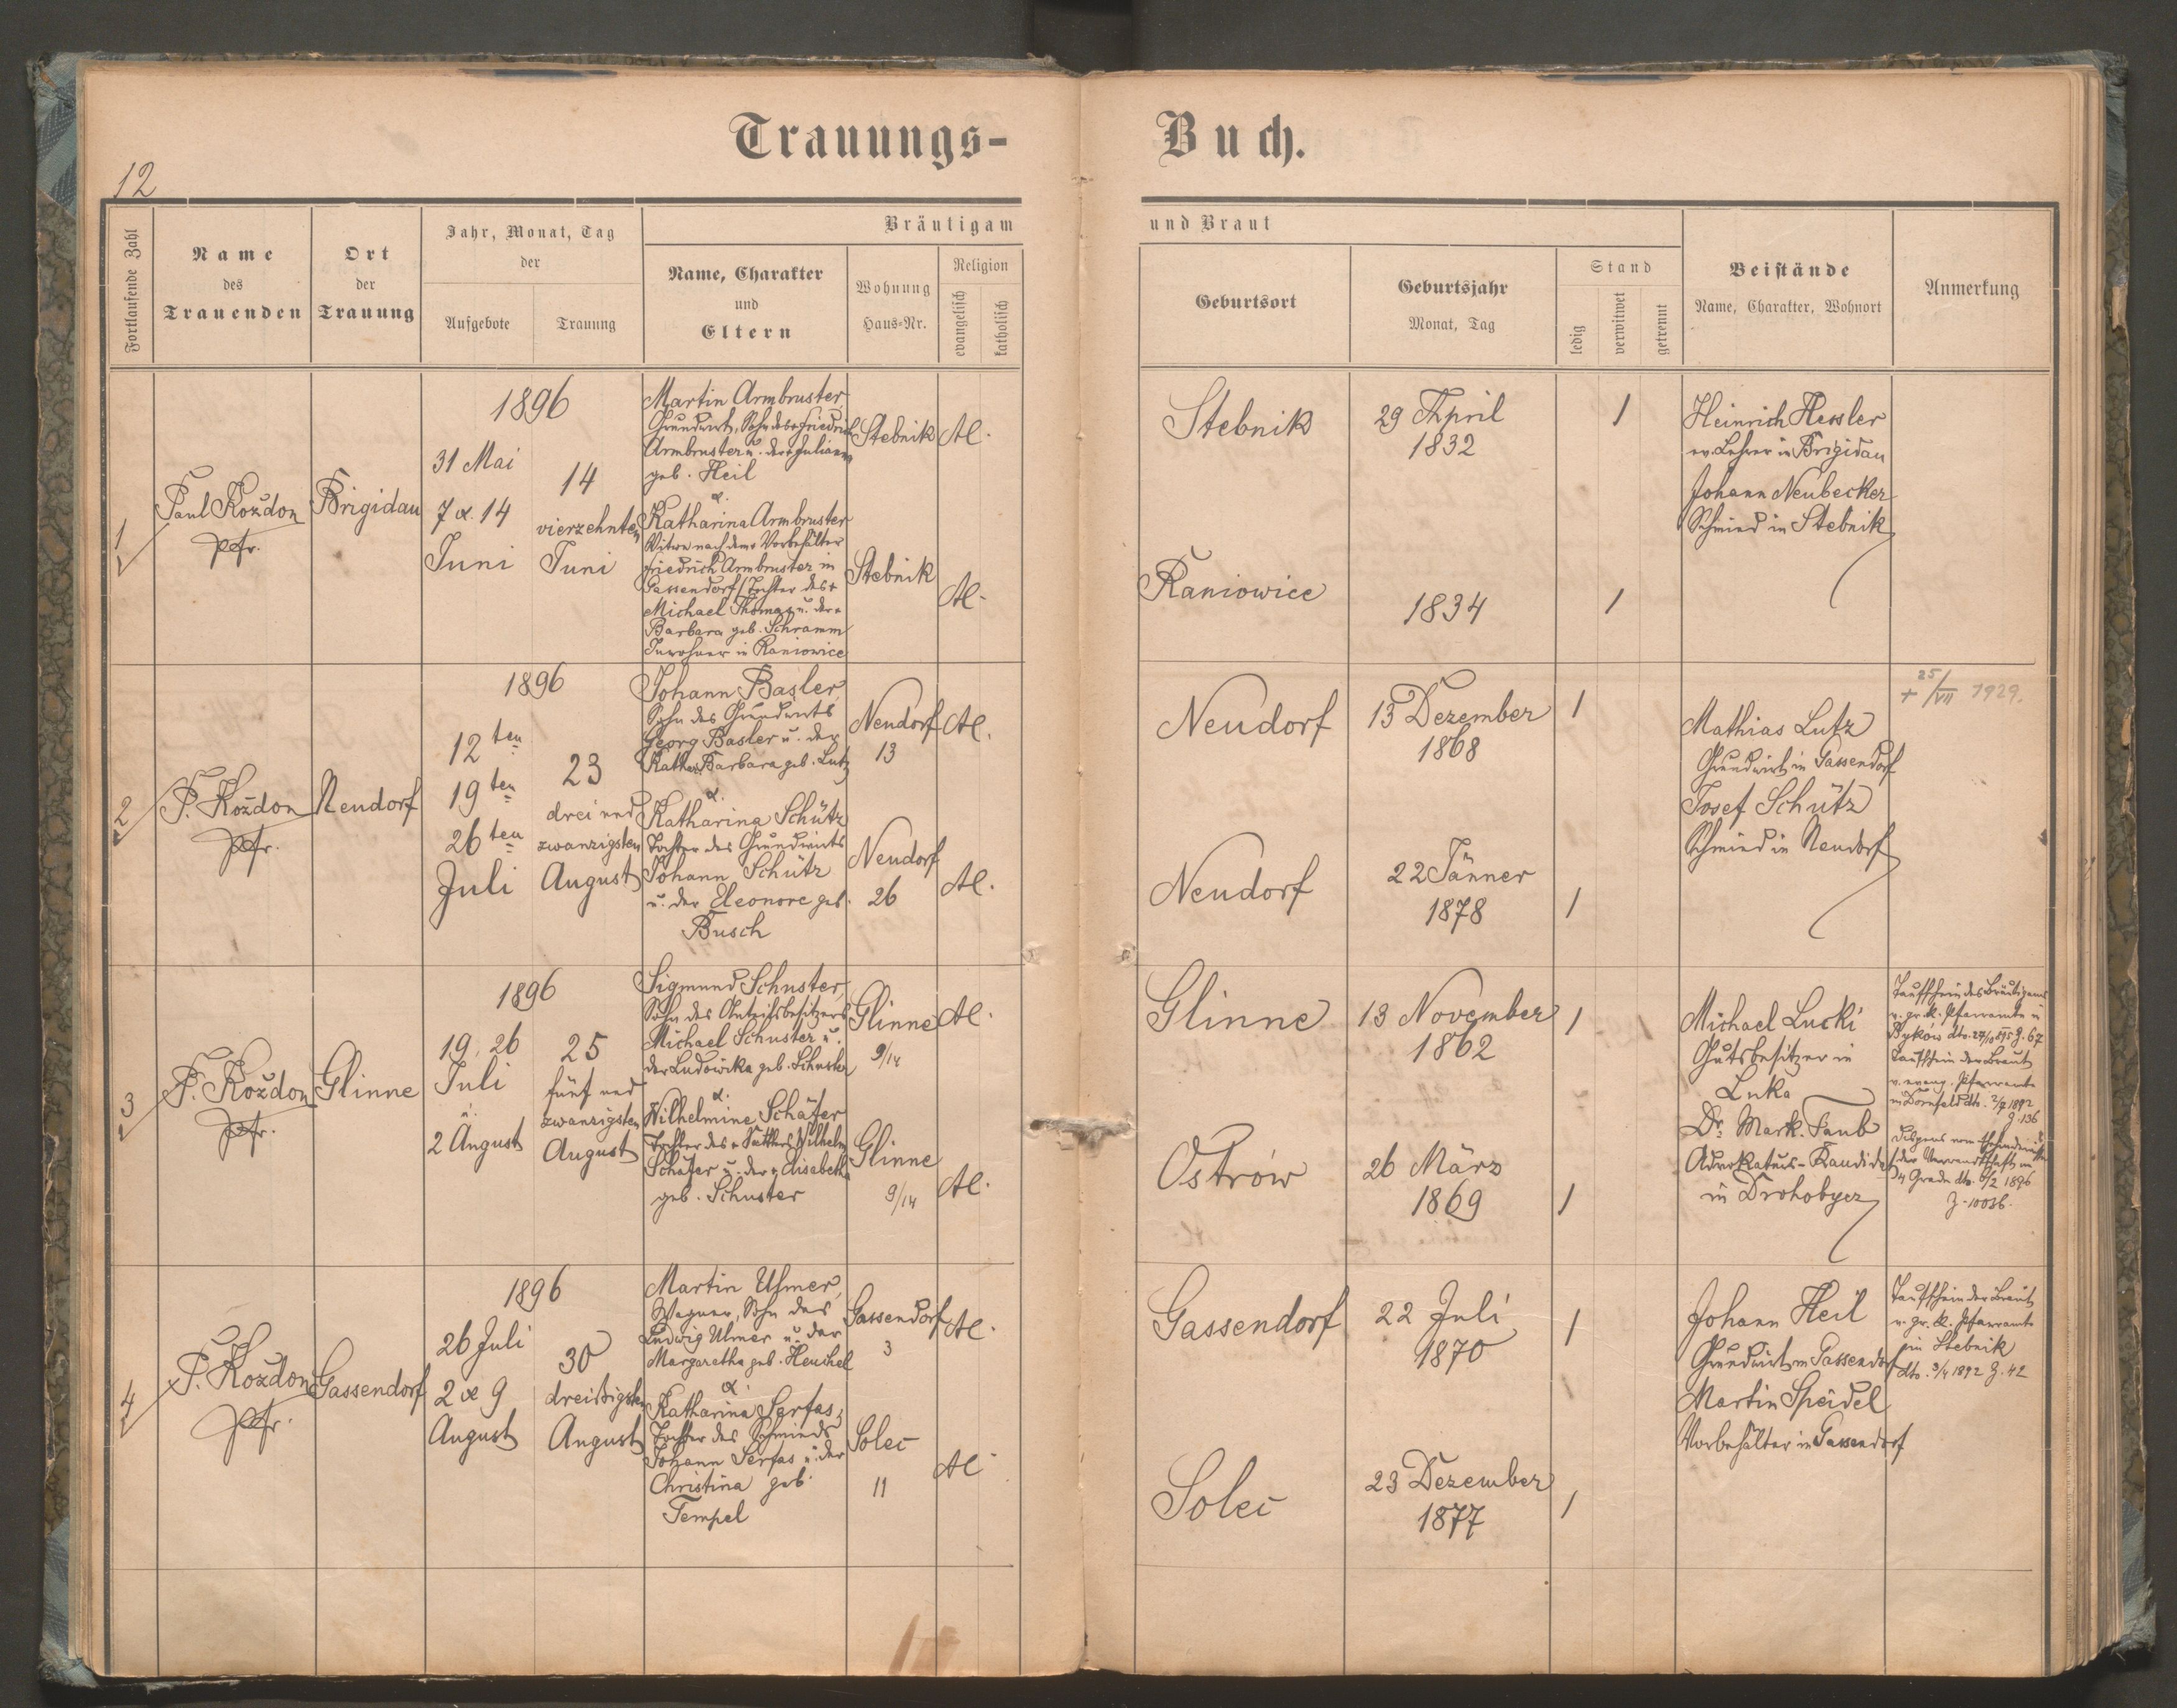 Trauungs-
Buch.
12
Fortlaufende Zahl
Name
des
Trauenden
Ort
der
Trauung
Jahr, Monat, Tag
der
Aufgebote
Trauung
Bräutigam
Name, Charakter
und
Eltern
Wohnung
Haus-Nr.
Religion
evangelisch
katholisch
und Braut
Geburtsort
Geburtsjahr
Monat, Tag
Stand
ledig
verwitwet
getrennt
Beistände
Name, Charakter, Wohnort
Anmerkung
1
Paul Kozdon
Pfr.
Brigidau
1896
31 Mai
7 & 14
Juni
14
vierzehnten
Juni
Martin Armbruster
Grundwirt, Sohn des + Friedrich
Armbruster u. der + Juliana
geb. Heil
&
Katharina Armbruster
Witwe nach dem + Vorbehälter
Friedrich Armbruster in
Gassendorf / Tochter des +
Michael Thomas u. der +
Barbara geb. Schramm
Inwohner in Raniowice
Stebnik
Stebnik
AC.
AC.
Stebnik
29 April
1832
1
Raniowice
1834
1
Heinrich Hessler
ev. Lehrer in Brigidau
Johann Neubecker
Schmied in Stebnik
2
P. Kozdon
Pfr.
Neudorf
1896
12ten
19ten
26ten
Juli
23
drei und
zwanzigsten
August
Johann Basler,
Sohn des Grundwirts
Georg Basler u. der
Kath. Barbara geb. Lutz
&
Katharina Schütz
Tochter des Grundwirts
Johann Schütz
u. der Eleonore geb.
Busch
Neudorf
13
Neudorf
26
AC.
AC.
Neudorf
13 Dezember
1868
1
Neudorf
22 Jänner
1878
1
Mathias Lutz
Grundwirt in Gassendorf
Josef Schütz
Schmied in Neudorf
+ 25/VII 1929.
3
P. Kozdon
Pfr.
Glinne
1896
19, 26
Juli
u.
2 August
25
fünf und
zwanzigsten
August
Sigmund Schuster,
Sohn des Anteilsbesitzers
Michael Schuster u.
der Ludowika geb. Schuster
&
Wilhelmine Schäfer
Tochter des + Sattlers Wilhelm
Schäfer u. der + Elisabeth
geb. Schuster
Glinne
9/14
Glinne
9/14
AC.
AC.
Glinne
13 November
1862
1
Ostrów
26 März
1869
1
Michael Lucki
Gutsbesitzer in
Luka
Dr. Mark. Taub
Advokaturs-Kandidat
in Drohobycz
Taufschein des Bräutigams
v. gr. k. Pfarramte in
Bykow dto. 27/10 895 Z. 67
Taufschein der Braut
v. evang. Pfarramte
in Dornfeld dto. 2/7 1892
Z. 136
Dispens vom Ehehindernisse
der Verwandtschaft im
4 Grade dto. 6/2 1896
4
P. Kozdon
Pfr.
Gassendorf
1896
26 Juli
2 & 9
August
30
dreißigsten
August
Martin Ulmer,
Wagner, Sohn des
Ludwig Ulmer u. der
Margaretha geb. Heuchel
&
Katharina Serfas,
Tochter des Schmieds
Johann Serfas u. der
Christina geb.
Tempel
Gassendorf
3
Solec
11
AC.
AC
Gassendorf
22 Juli
1870
1
Solec
23 Dezember
1877
1
Johann Heil
Grundwirt in Gassendorf
Martin Speidel
Vorbehälter in Gassendorf
Taufschein der Braut
v. gr. k. Pfarramte
in Stebnik
dto. 3/4 1892 Z. 42